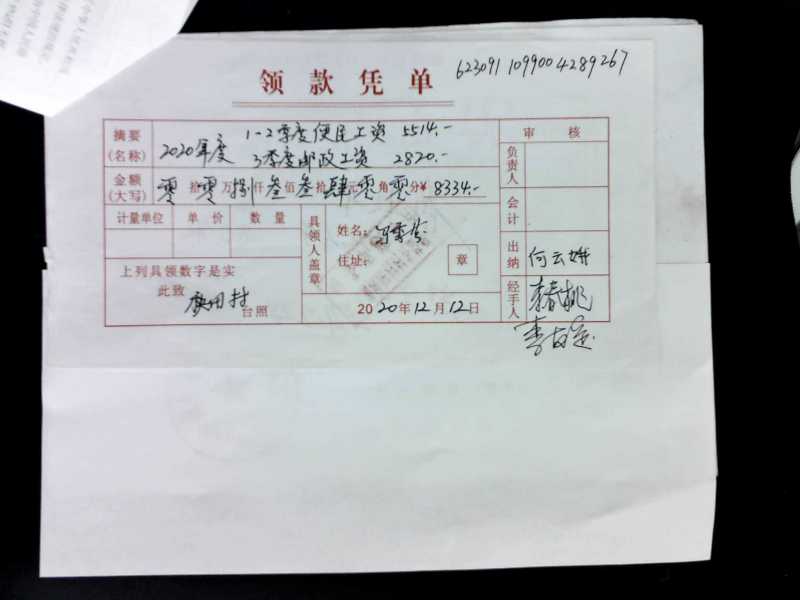 领款凭单
6230911099004289267
摘要
(名称)
2020年度
1-2季度便民工资 5514.-
3季度邮政工资 2820.-
审核
负责人
金额
(大写)
零拾零万捌仟叁佰叁拾肆元零角零分¥8334.-
会计
计量单位 单价 数量
具领人盖章
姓名:
住址:
章
出纳
何云娥
上列具领数字是实
此致
台照
2020年12月12日
经手人
李春桃